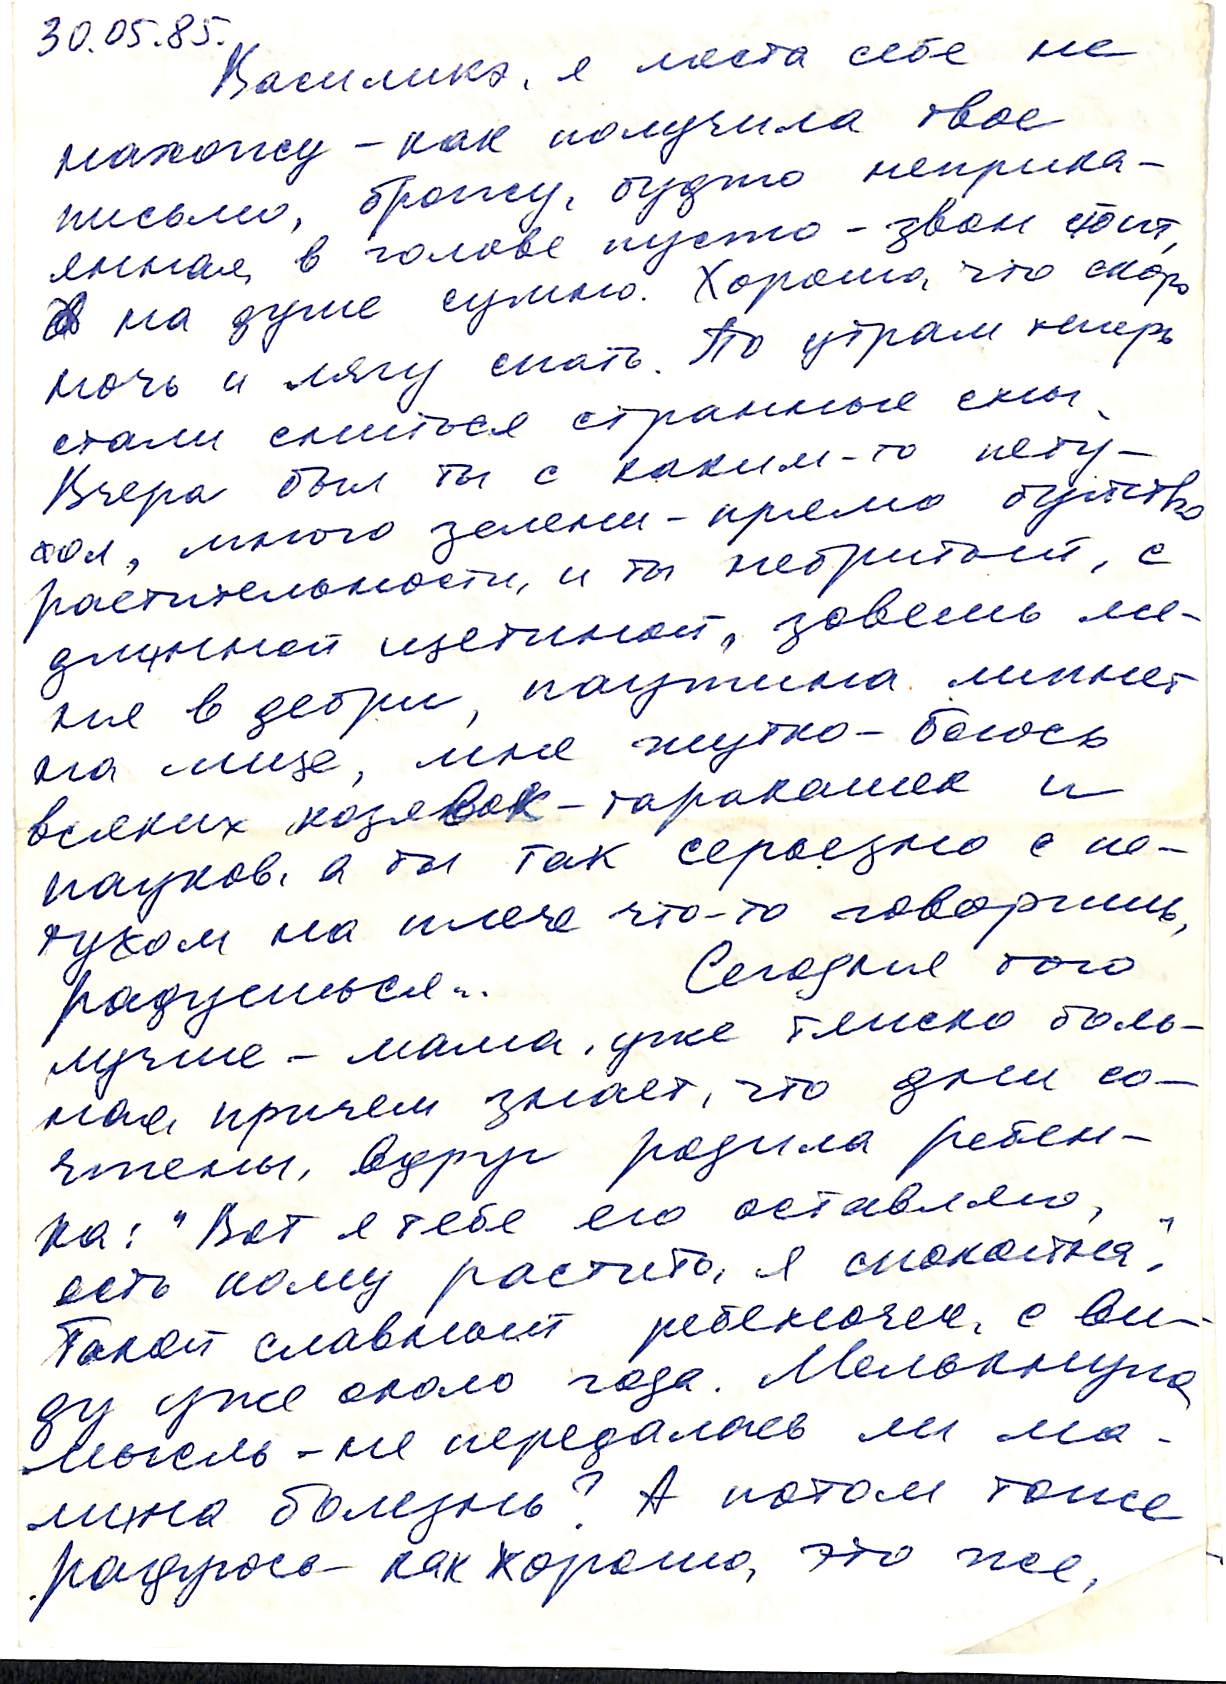 30.05.85.
Василикэ, я места себе не
нахожу – как получила твое
письмо, брожу, будто неприка-
янная, в голове пусто – звон стоит,
на душе сумно. Хорошо, что скоро
ночь и лягу спать. По утрам теперь
стали сниться странные сны.
Вчера был ты с каким-то пету-
хом, много зелени – прямо буйство
растительности, и ты небритый, с
длинной щетиной, зовешь ме-
ня в дебри, паутина липнет
на лице, мне жутко – боюсь
всяких козявок-таракашек и
пауков, а ты так серьезно с пе-
тухом на плече что-то говоришь,
радуешься... Сегодня того
лучше – мама, уже тяжко боль-
ная, причем знает, что дни со-
чтены, вдруг родила ребен-
ка: "Вот я тебе его оставляю,
есть кому растить, я спокойна".
Такой славный ребеночек, с ви-
ду уже около года. Мелькнула
мысль – не передалась ли ма-
мина болезнь? А потом тоже
радуюсь – как хорошо, это же,